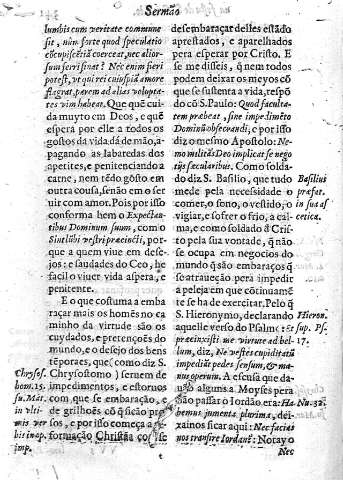 Sermão
lumbis cum veritate commune
sit, nùm forte quod speculatio
cõcupiscētiā coercet, nec aliorsum
ferri sinat? Nec enim fieri
potest, vt qui rei cuiuspiã amore
flagrat, parem ad alias voluptates
vim habeat. Que quē cuida
muyto em Deos, e que
espera por elle a todos os
gostos da vida dá de mão, apagando
as labaredas dos
apetites, e penitenciando a
carne, nem tēdo gôsto em
outra cousa, senão em o seruir
com amor. Pois por isso
conforma bem o Expectantibus
Dominum suum, com o
Sint lũbi vestri præcincti, porque
a quem viue em desejos:
e saudades do Ceo, he
facil o viuer vida aspera, e
penitente.
E o que costuma a embaraçar
mais os homēs no caminho
da virtude são os
cuydados, e pretenções do
mundo, e o desejo dos bens
tēporaes, que (como diz S.
Chrysostomo) seruem de
impedimentos, e estoruos
com que se embaração, e
de grilhoēs cõ q̃ se ão presos,
e por isso começa a
formação Christãa cõ se
Chrysos.
hom. 15.
su. Mat.
in vltimis
verbis
inop.
imp.
desembaraçar delles estãdo
aprestados, e aparelhados
pera esperar por Cristo. E
se me disseis, q̃ nem todos
podem deixar os meyos cõ
que se sustenta a vida, respõdo
cõ S. Paulo: Quod facultatem
præbeat, sine impedimēto
Dominũ obsecrandi, e por isso
diz o mesmo Apostolo: Nemo
militãs Deo implicat se negotijs
sæcularibus. Como soldado
diz S. Basilio, que tudo
mede pela necessidade o
comer, o sono, o vestido, o
vigiar, e sofrer o frio, a calma,
e como soldado d̃ Cristo
pela sua vontade, q̃ não
se ocupa em negocios do
mundo q̃ são embaraços q̃
se atraueção pera impedir
a peleja em que cõtinuamēte
se ha de exercitar. Pelo q̃
S. Hieronymo, declarando
aquelle verso do Psalmo:
præcinxisti me virtute ad bellum,
diz, Ne vestes cupiditatũ
impediãt pedes sensum, & manus
operum. A escusa que daua
algũs a Moyses pera
não passar o Iordão era: Habemus
jumenta plurima, deixainos
ficar aqui: Nec facias
nos transire Iordanē: Não ay o
Basilius
præfat.
in sua ascetica.
Hieron.
sup. Ps.
17.
Nu. 32.
Nec